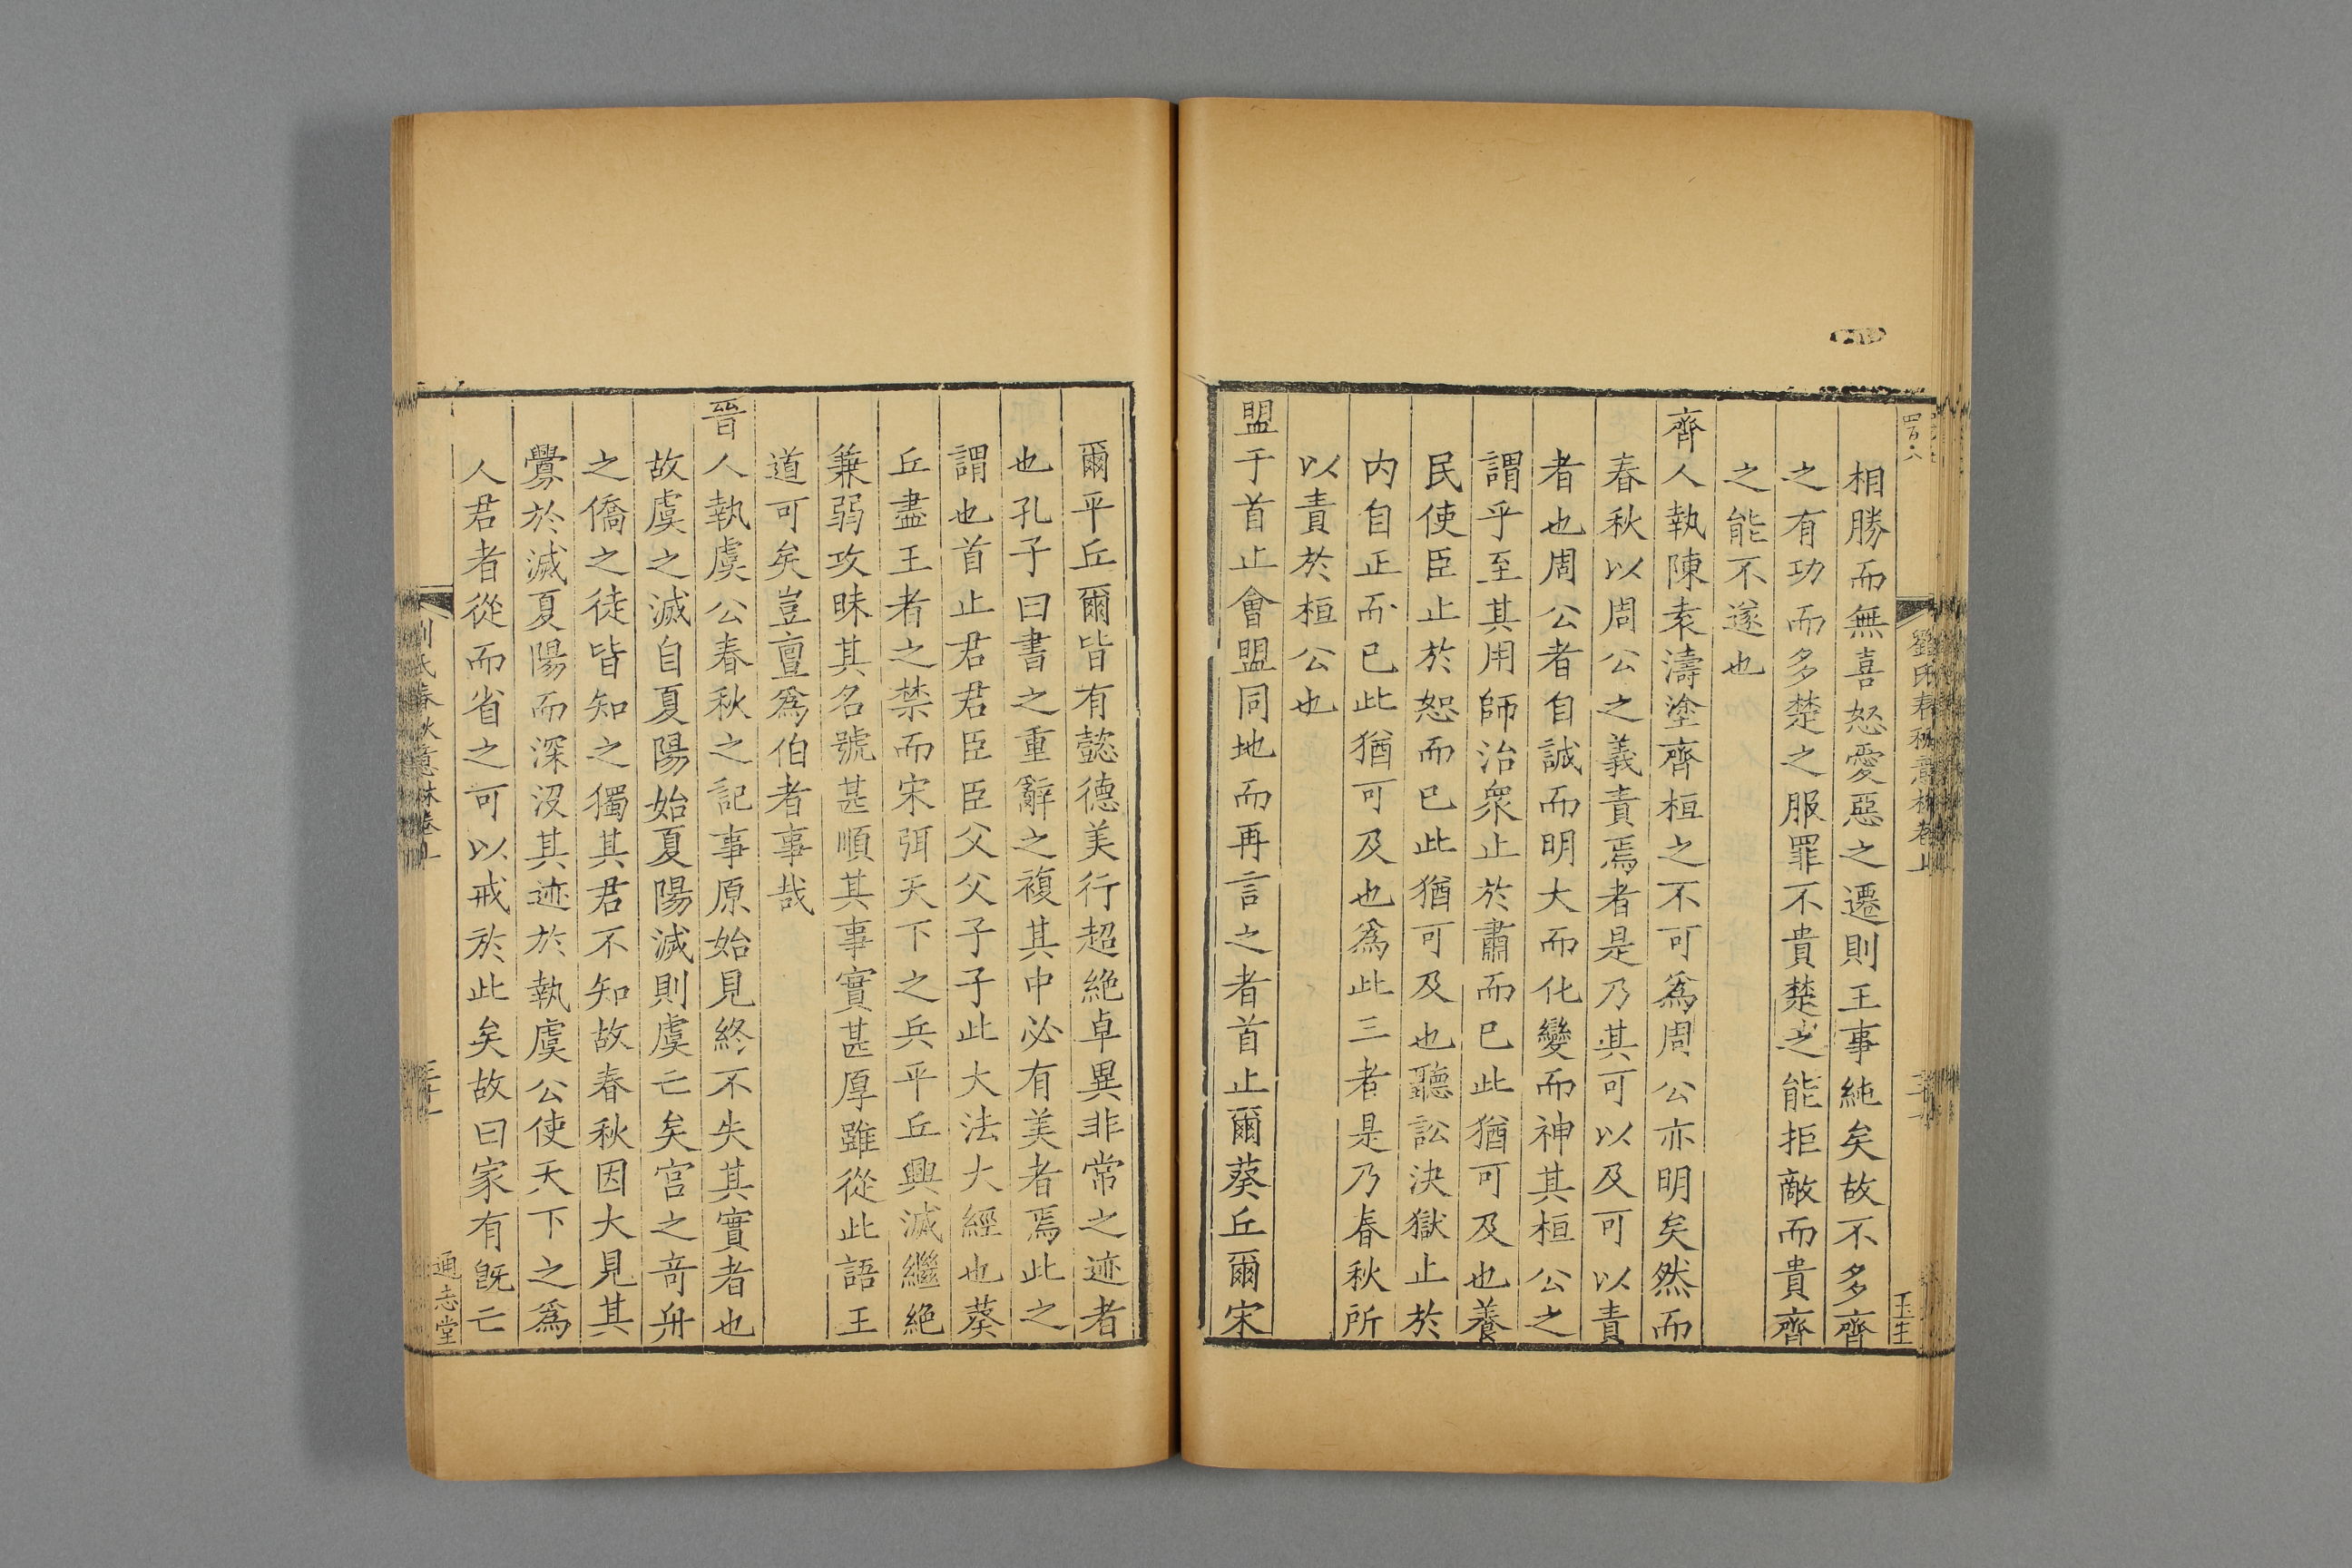 四百八
劉氏春秋意林卷上
王生
相勝而無喜怒愛惡之遷則王事純矣故不多齊
之有功而多楚之服罪不貴楚之能拒敵而貴齊
之能不遂也
齊人執陳袁濤塗齊桓之不可爲周公亦明矣然而
春秋以周公之義責焉者是乃其可以及可以責
者也周公者自誠而明大而化變而神其桓公之
謂乎至其用師治衆止於肅而已此猶可及也養
民使臣止於恕而已此猶可及也聽訟決獄止於
内自正而已此猶可及也爲此三者是乃春秋所
以責於桓公也
盟于首止會盟同地而再言之者首止爾葵丘爾宋
爾平丘爾皆有懿德美行超絶卓異非常之迹者
也孔子曰書之重辭之複其中必有美者焉此之
謂也首止君君臣臣父父子子此大法大經也葵
丘盡王者之禁而宋弭天下之兵平丘興滅繼絶
兼弱攻昧其名號甚順其事實甚厚雖從此語王
道可矣豈亶爲伯者事哉
晉人執虞公春秋之記事原始見終不失其實者也
故虞之滅自夏陽始夏陽滅則虞亡矣宫之奇舟
之僑之徒皆知之獨其君不知故春秋因大見其
釁於滅夏陽而深沒其迹於執虞公使天下之爲
人君者從而省之可以戒於此矣故曰家有旣亡
劉氏春秋意林卷上
通志堂